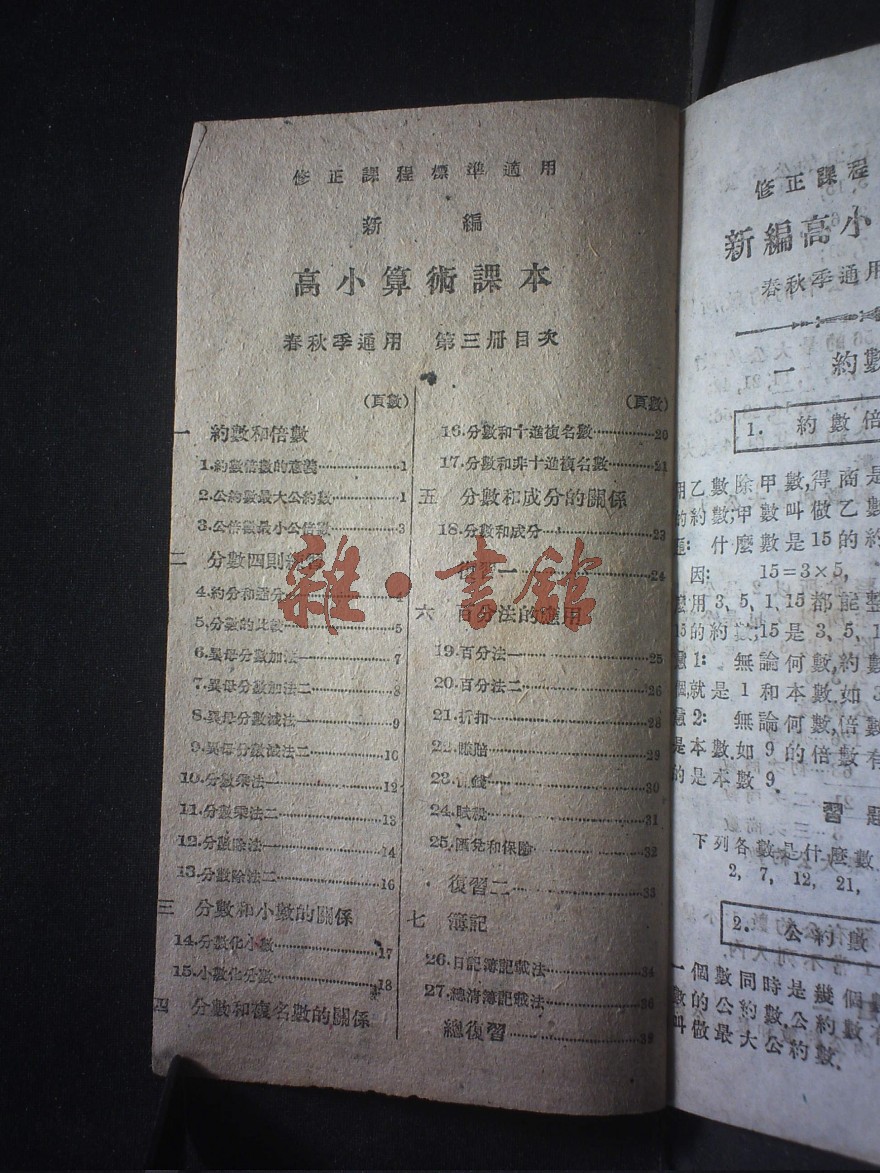 修正課程標準適用
新編
高小算術課本
春秋季通用 第三册目次
(頁數)
一 約數和倍數
1.約數倍數的意義 1
2.公約數最大公約數 1
3.公倍數最小公倍數 3
二 分數四則
4.約分和通分 4
5.分數的比較 5
6.異母分數加法一 7
7.異母分數加法二 8
8.異母分數減法一 9
9.異母分數減法二 10
10.分數乘法一 12
11.分數乘法二 13
12.分數除法一 14
13.分數除法二 16
三 分數和小數的關係
14.分數化小數 17
15.小數化分數 18
四 分數和複名數的關係
(頁數)
16.分數和十進複名數 20
17.分數和非十進複名數 21
五 分數和成分的關係
18.分數和成分 23
一 24
六 百分法的應用
19.百分法一 25
20.百分法二 26
21.折扣 28
22.賺賠 29
23.錢 30
24.賦稅 31
25.匯兌和保險 32
復習二 33
七 簿記
26.日記簿記載法 34
27.總清簿記載法 36
總復習 38
雜·書館
修正課程
新編高小
春秋季通用
一 約數
1. 約數倍
用乙數除甲數,得商是
的約數;甲數叫做乙數
什麼數是15的約
因: 15=3×5,
用3、5、1、15都能整
15的約數;15是3、5、1
1: 無論何數,約數
就是1和本數.如3
2: 無論何數,倍數
是本數.如9的倍數有
的是本數9.
習題
下列各數是什麼數
2, 7, 12, 21,
2. 公約數
一個數同時是幾個數
數的公約數,公約數有
叫做最大公約數.